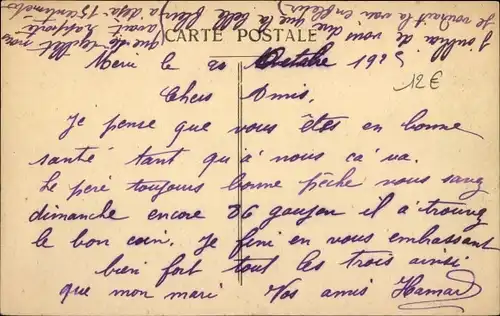 CARTE POSTALE
J'oublie de vous dire que la belle fleur
je voudrais la voir en fleur) a déjà 15 centimètres
que
avait rapporté
Meru le 2 Octobre 1925
12 €
Chers Amis,
Je pense que vous êtes en bonne
santé tant qu'à nous ca va.
Le père toujours bonne pêche nous
dimanche encore 86 goujon il à trouvez
le bon coin. Je fini en vous embrassant
bien fort tout les trois ainsi
que mon mari Vos amis Hamard